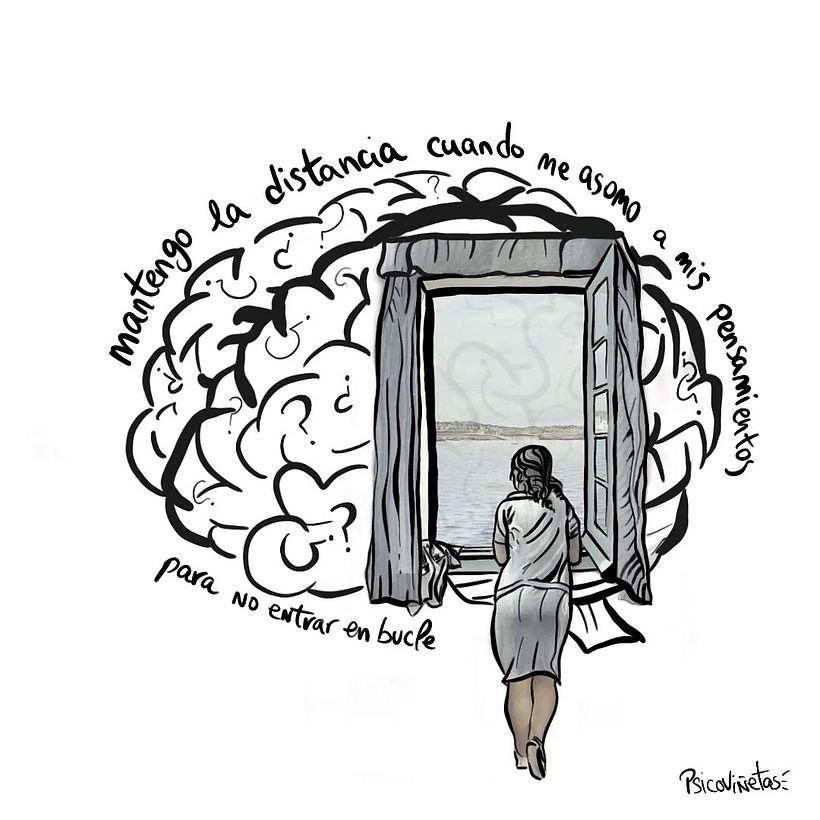 mantengo la distancia cuando me asomo a mis pensamientos
para no entrar en bucle
Psicoviñetas